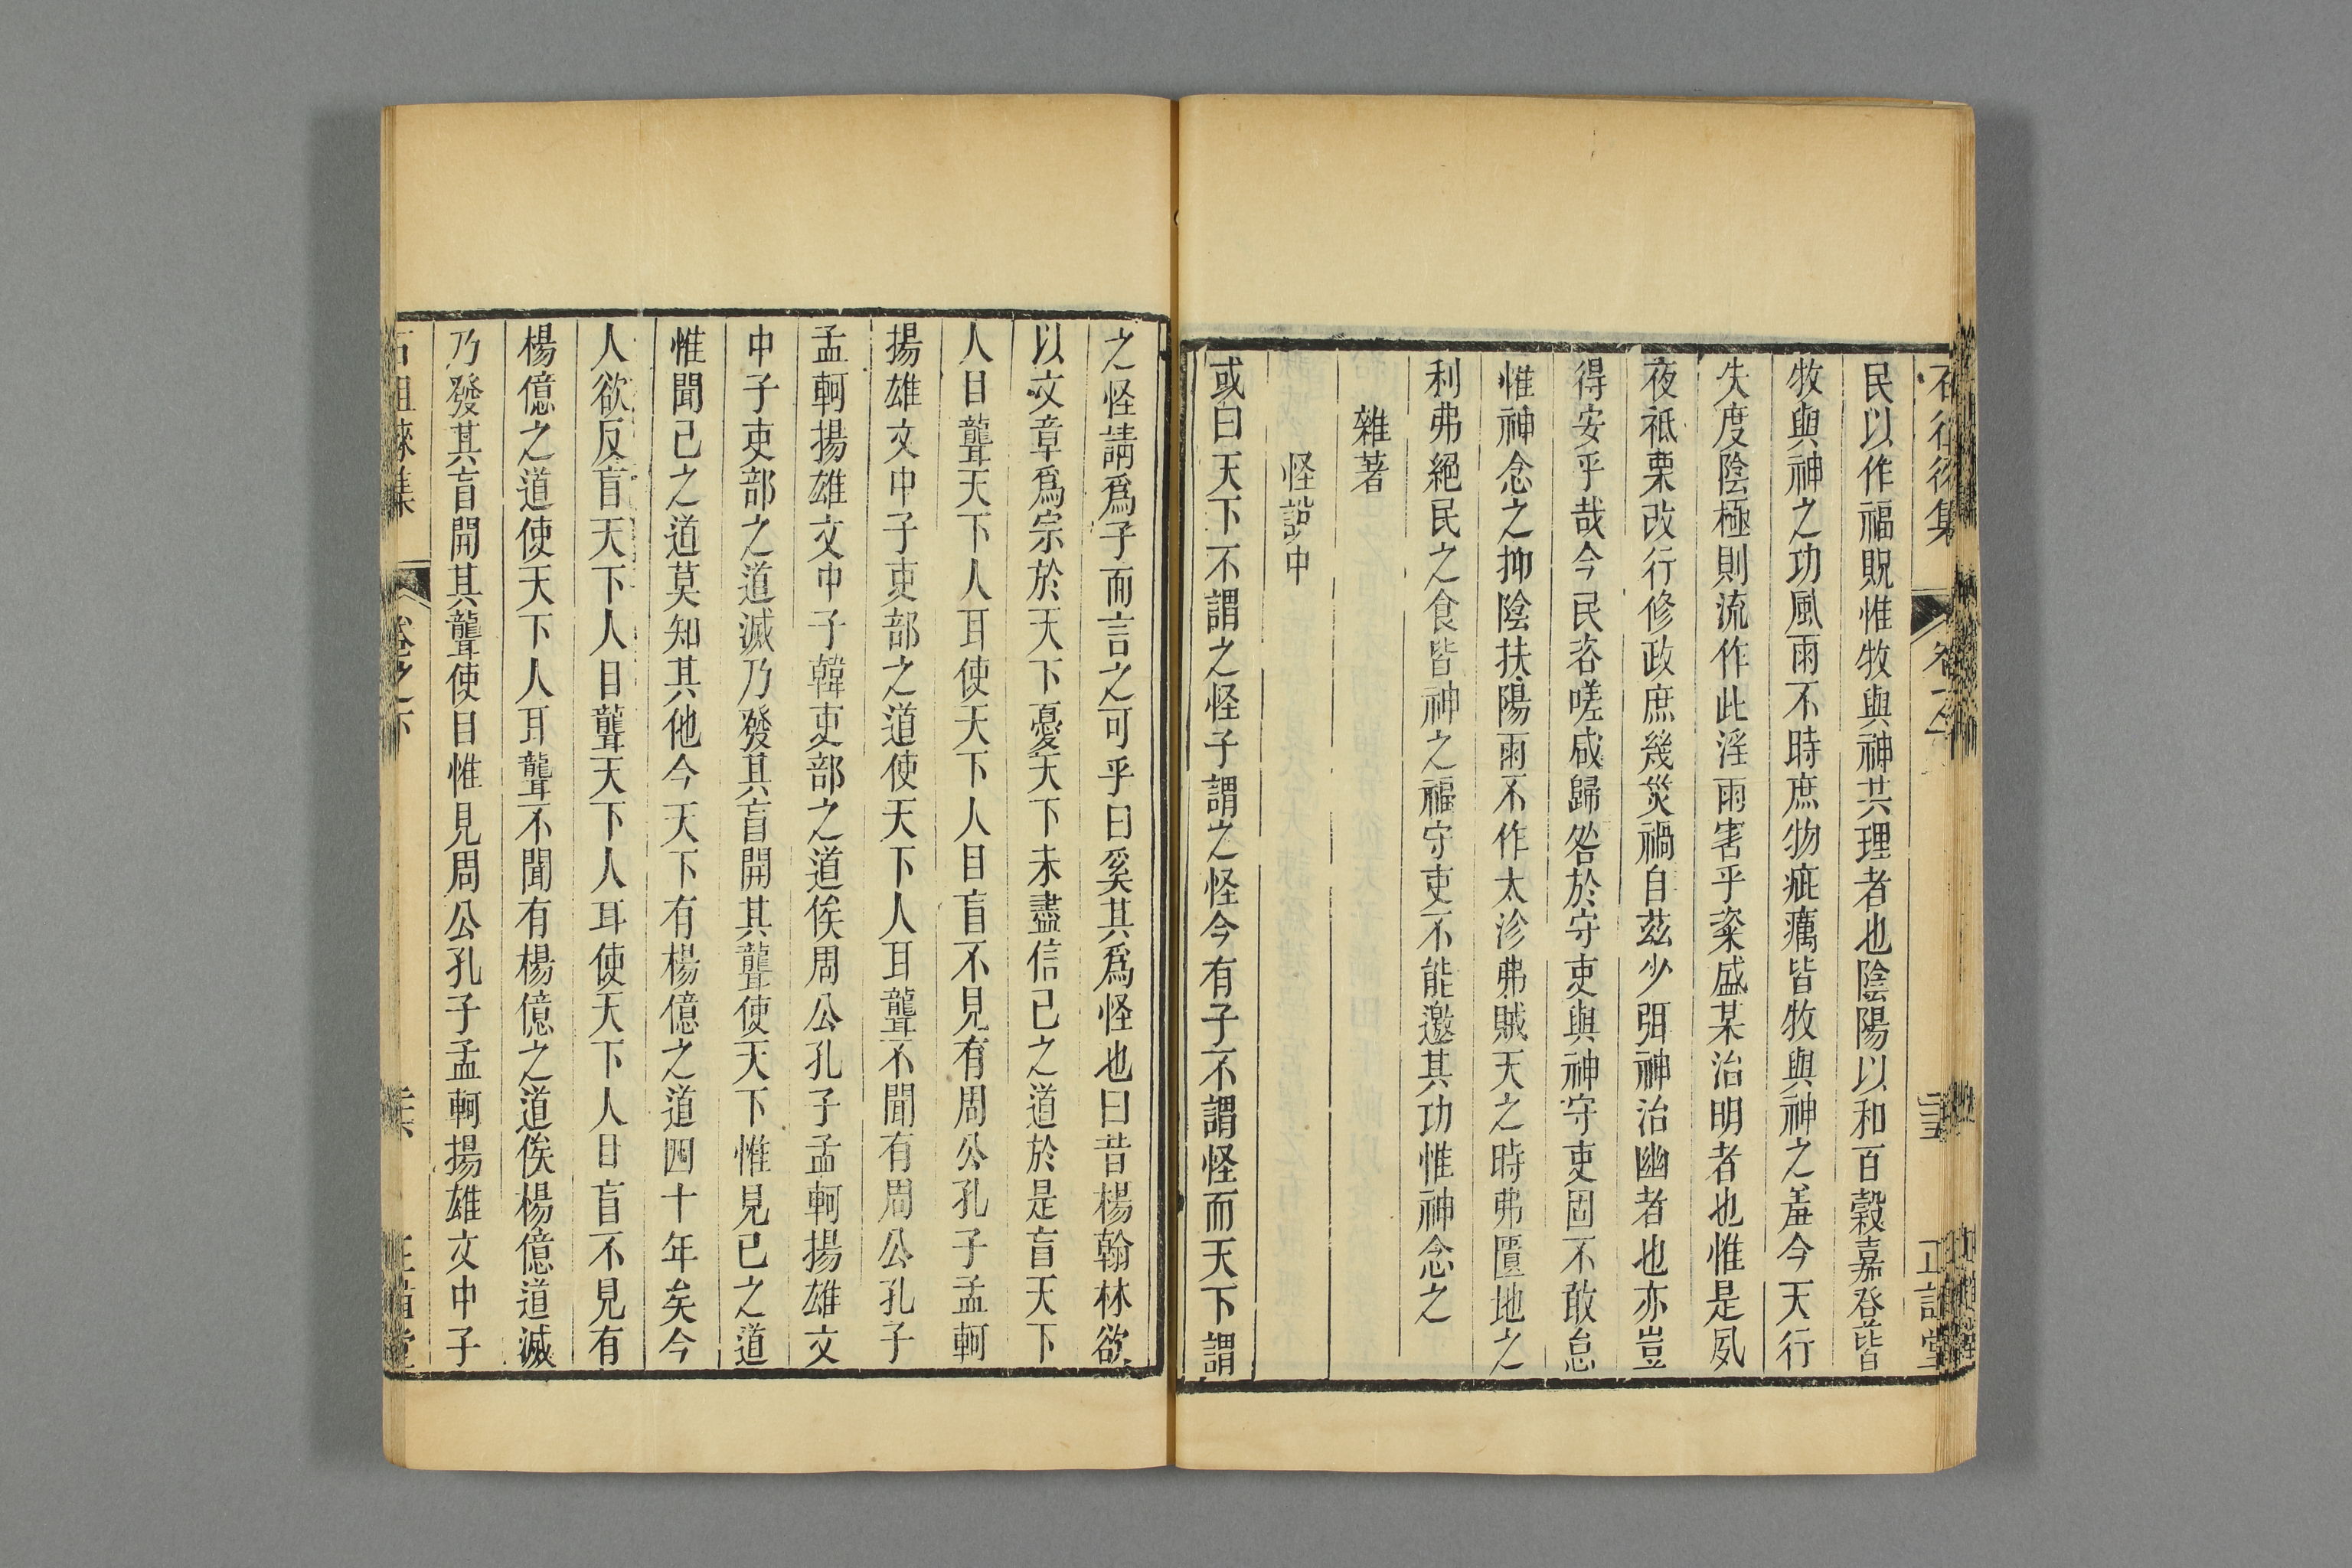 民以作福貺惟牧與神共理者也陰陽以和百穀嘉登皆
牧與神之功風雨不時庶物疵癘皆牧與神之羞今天行
失度陰極則流作此淫雨害乎粢盛某治明者也惟是夙
夜祗栗改行修政庶幾災禍自茲少弭神治幽者也亦豈
得安乎哉今民咨嗟咸歸咎於守吏與神守吏固不敢怠
惟神念之抑陰扶陽雨不作太沴弗賊天之時弗匱地之
利弗絕民之食皆神之福守吏不能邀其功惟神念之
雜著
怪說中
或曰天下不謂之怪子謂之怪今有子不謂怪而天下謂
之怪請爲子而言之可乎曰奚其爲怪也曰昔楊翰林欲
以文章爲宗於天下憂天下未盡信己之道於是盲天下
人目聾天下人耳使天下人目盲不見有周公孔子孟軻
揚雄文中子吏部之道使天下人耳聾不聞有周公孔子
孟軻揚雄文中子韓吏部之道俟周公孔子孟軻揚雄文
中子吏部之道滅乃發其盲開其聾使天下惟見己之道
惟聞己之道莫知其他今天下有楊億之道四十年矣今
人欲反盲天下人目聾天下人耳使天下人目盲不見有
楊億之道使天下人耳聾不聞有楊億之道俟楊億道滅
乃發其盲開其聾使目惟見周公孔子孟軻揚雄文中子
卷之下